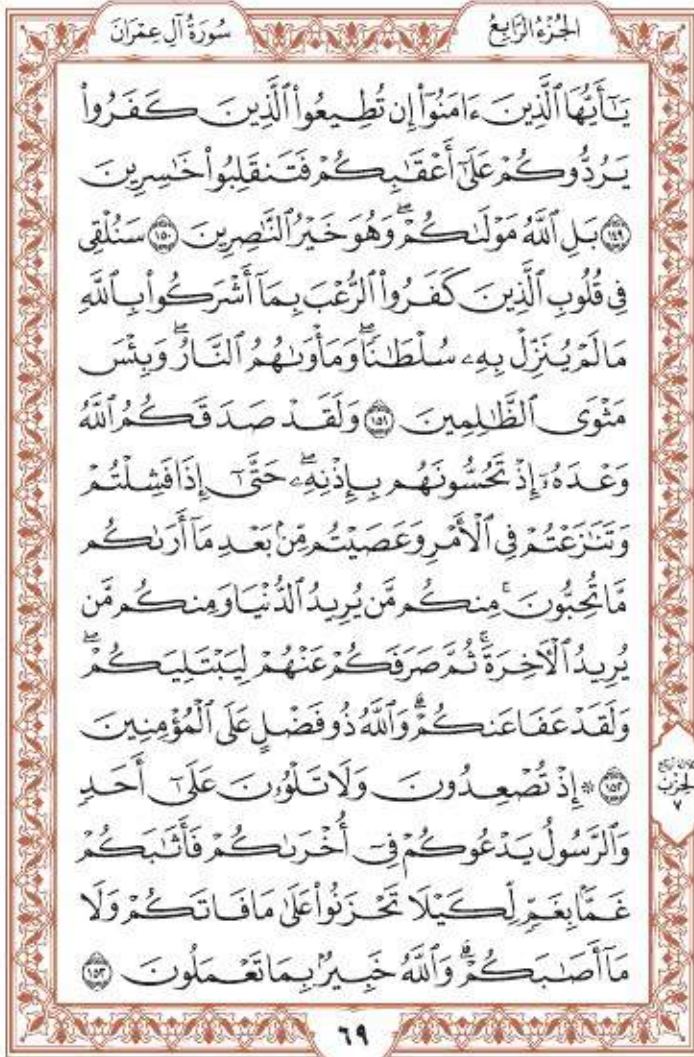 الجُزْءُ الرَّابِعُ
سُورَةُ آلِ عِمْرَانَ
يَـٰٓأَيُّهَا ٱلَّذِينَ ءَامَنُوٓا۟ إِن تُطِيعُوا۟ ٱلَّذِينَ كَفَرُوا۟
يَرُدُّوكُمْ عَلَىٰٓ أَعْقَـٰبِكُمْ فَتَنقَلِبُوا۟ خَـٰسِرِينَ
﴿١٤٩﴾ بَلِ ٱللَّهُ مَوْلَىٰكُمْ ۖ وَهُوَ خَيْرُ ٱلنَّـٰصِرِينَ ﴿١٥٠﴾ سَنُلْقِى
فِى قُلُوبِ ٱلَّذِينَ كَفَرُوا۟ ٱلرُّعْبَ بِمَآ أَشْرَكُوا۟ بِٱللَّهِ
مَا لَمْ يُنَزِّلْ بِهِۦ سُلْطَـٰنًا ۖ وَمَأْوَىٰهُمُ ٱلنَّارُ ۖ وَبِئْسَ
مَثْوَى ٱلظَّـٰلِمِينَ ﴿١٥١﴾ وَلَقَدْ صَدَقَكُمُ ٱللَّهُ
وَعْدَهُۥٓ إِذْ تَحُسُّونَهُم بِإِذْنِهِۦ ۖ حَتَّىٰٓ إِذَا فَشِلْتُمْ
وَتَنَـٰزَعْتُمْ فِى ٱلْأَمْرِ وَعَصَيْتُم مِّنۢ بَعْدِ مَآ أَرَىٰكُم
مَّا تُحِبُّونَ ۚ مِنكُم مَّن يُرِيدُ ٱلدُّنْيَا وَمِنكُم مَّن
يُرِيدُ ٱلْـَٔاخِرَةَ ۚ ثُمَّ صَرَفَكُمْ عَنْهُمْ لِيَبْتَلِيَكُمْ ۖ
وَلَقَدْ عَفَا عَنكُمْ ۗ وَٱللَّهُ ذُو فَضْلٍ عَلَى ٱلْمُؤْمِنِينَ
﴿١٥٢﴾ ۞ إِذْ تُصْعِدُونَ وَلَا تَلْوُۥنَ عَلَىٰٓ أَحَدٍ
وَٱلرَّسُولُ يَدْعُوكُمْ فِىٓ أُخْرَىٰكُمْ فَأَثَـٰبَكُمْ
غَمًّۢا بِغَمٍّ لِّكَيْلَا تَحْزَنُوا۟ عَلَىٰ مَا فَاتَكُمْ وَلَا
مَآ أَصَـٰبَكُمْ ۗ وَٱللَّهُ خَبِيرٌۢ بِمَا تَعْمَلُونَ ﴿١٥٣﴾
ثلاثة أرباع
الحزب
٧
٦٩